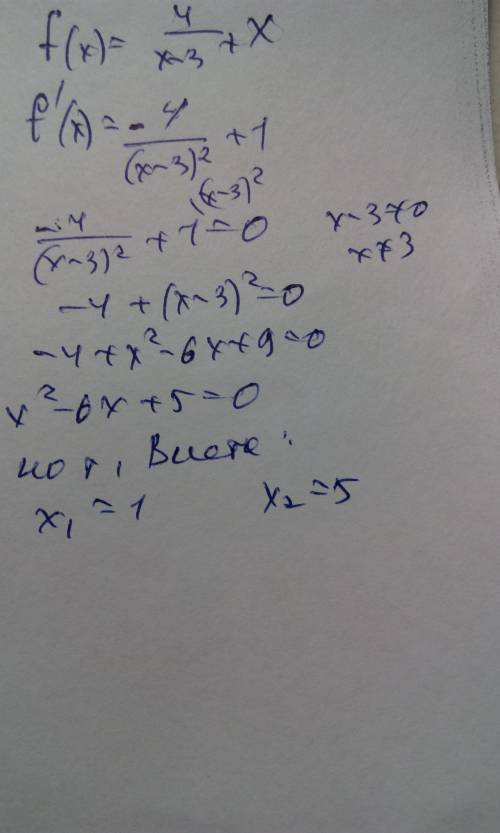 f(x) = 4/(x-3) + x
f'(x) = -4/(x-3)² + 1
(x-3)²
-4/(x-3)² + 1 = 0 x-3≠0
x≠3
-4 + (x-3)² = 0
-4 + x² - 6x + 9 = 0
x² - 6x + 5 = 0
по т, Виета:
x₁ = 1 x₂ = 5